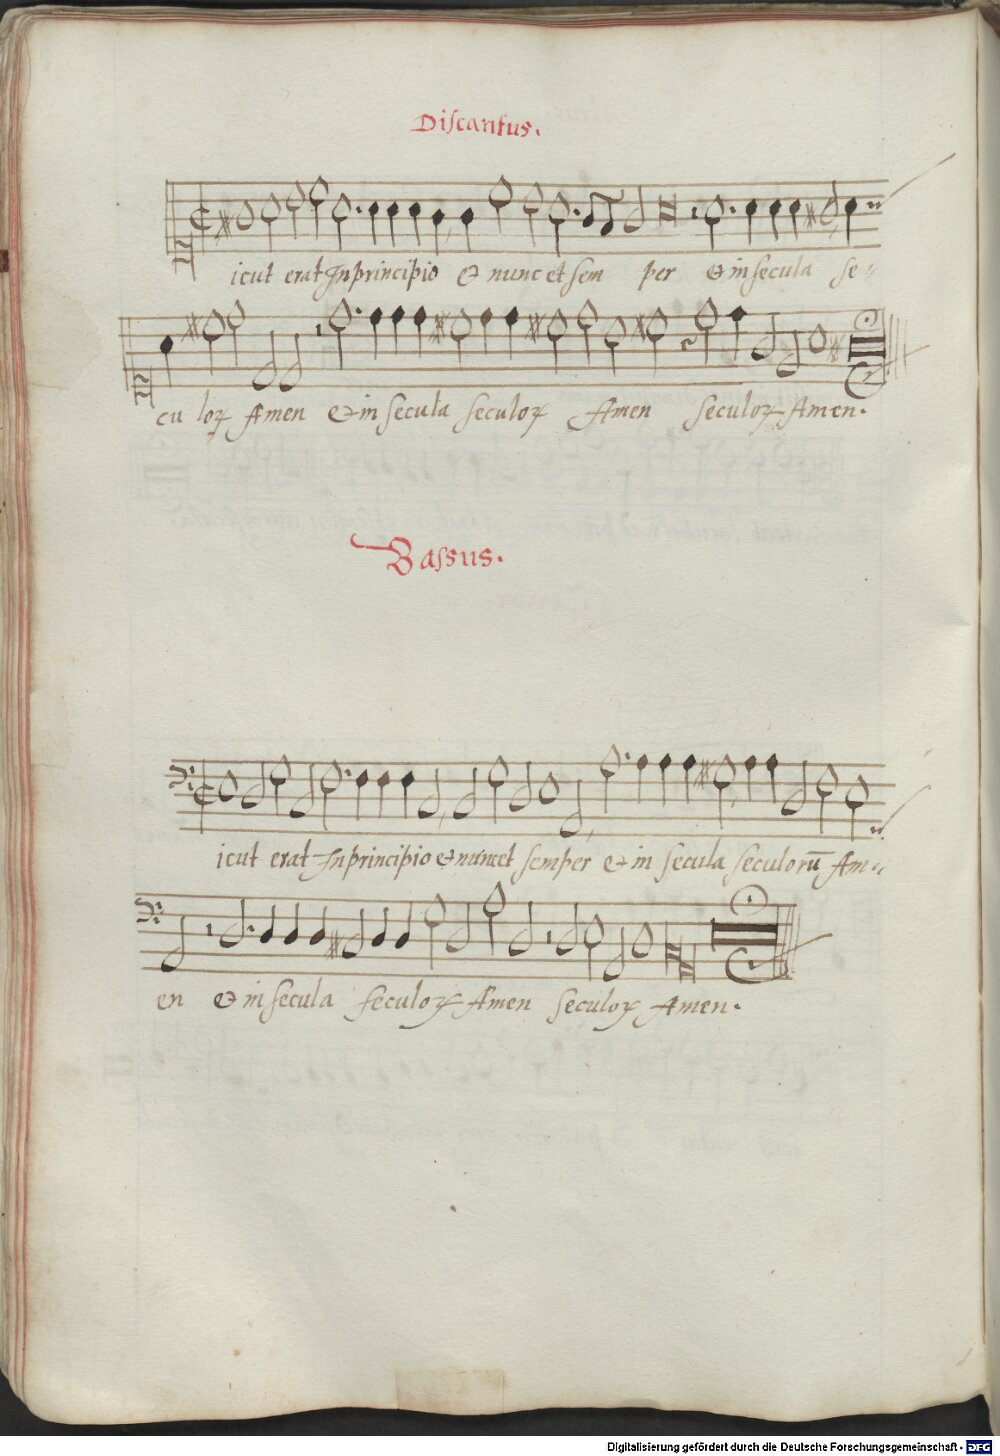 Discantus.
icut erat In principio & nunc et sem per & in secula se
cu loꝝ Amen & in secula seculoꝝ Amen seculoꝝ Amen.
Bassus.
icut erat In principio et nunc et semper & in secula seculorū Am
en & in secula seculoꝝ Amen seculoꝝ Amen.
Digitalisierung gefördert durch die Deutsche Forschungsgemeinschaft - DFG